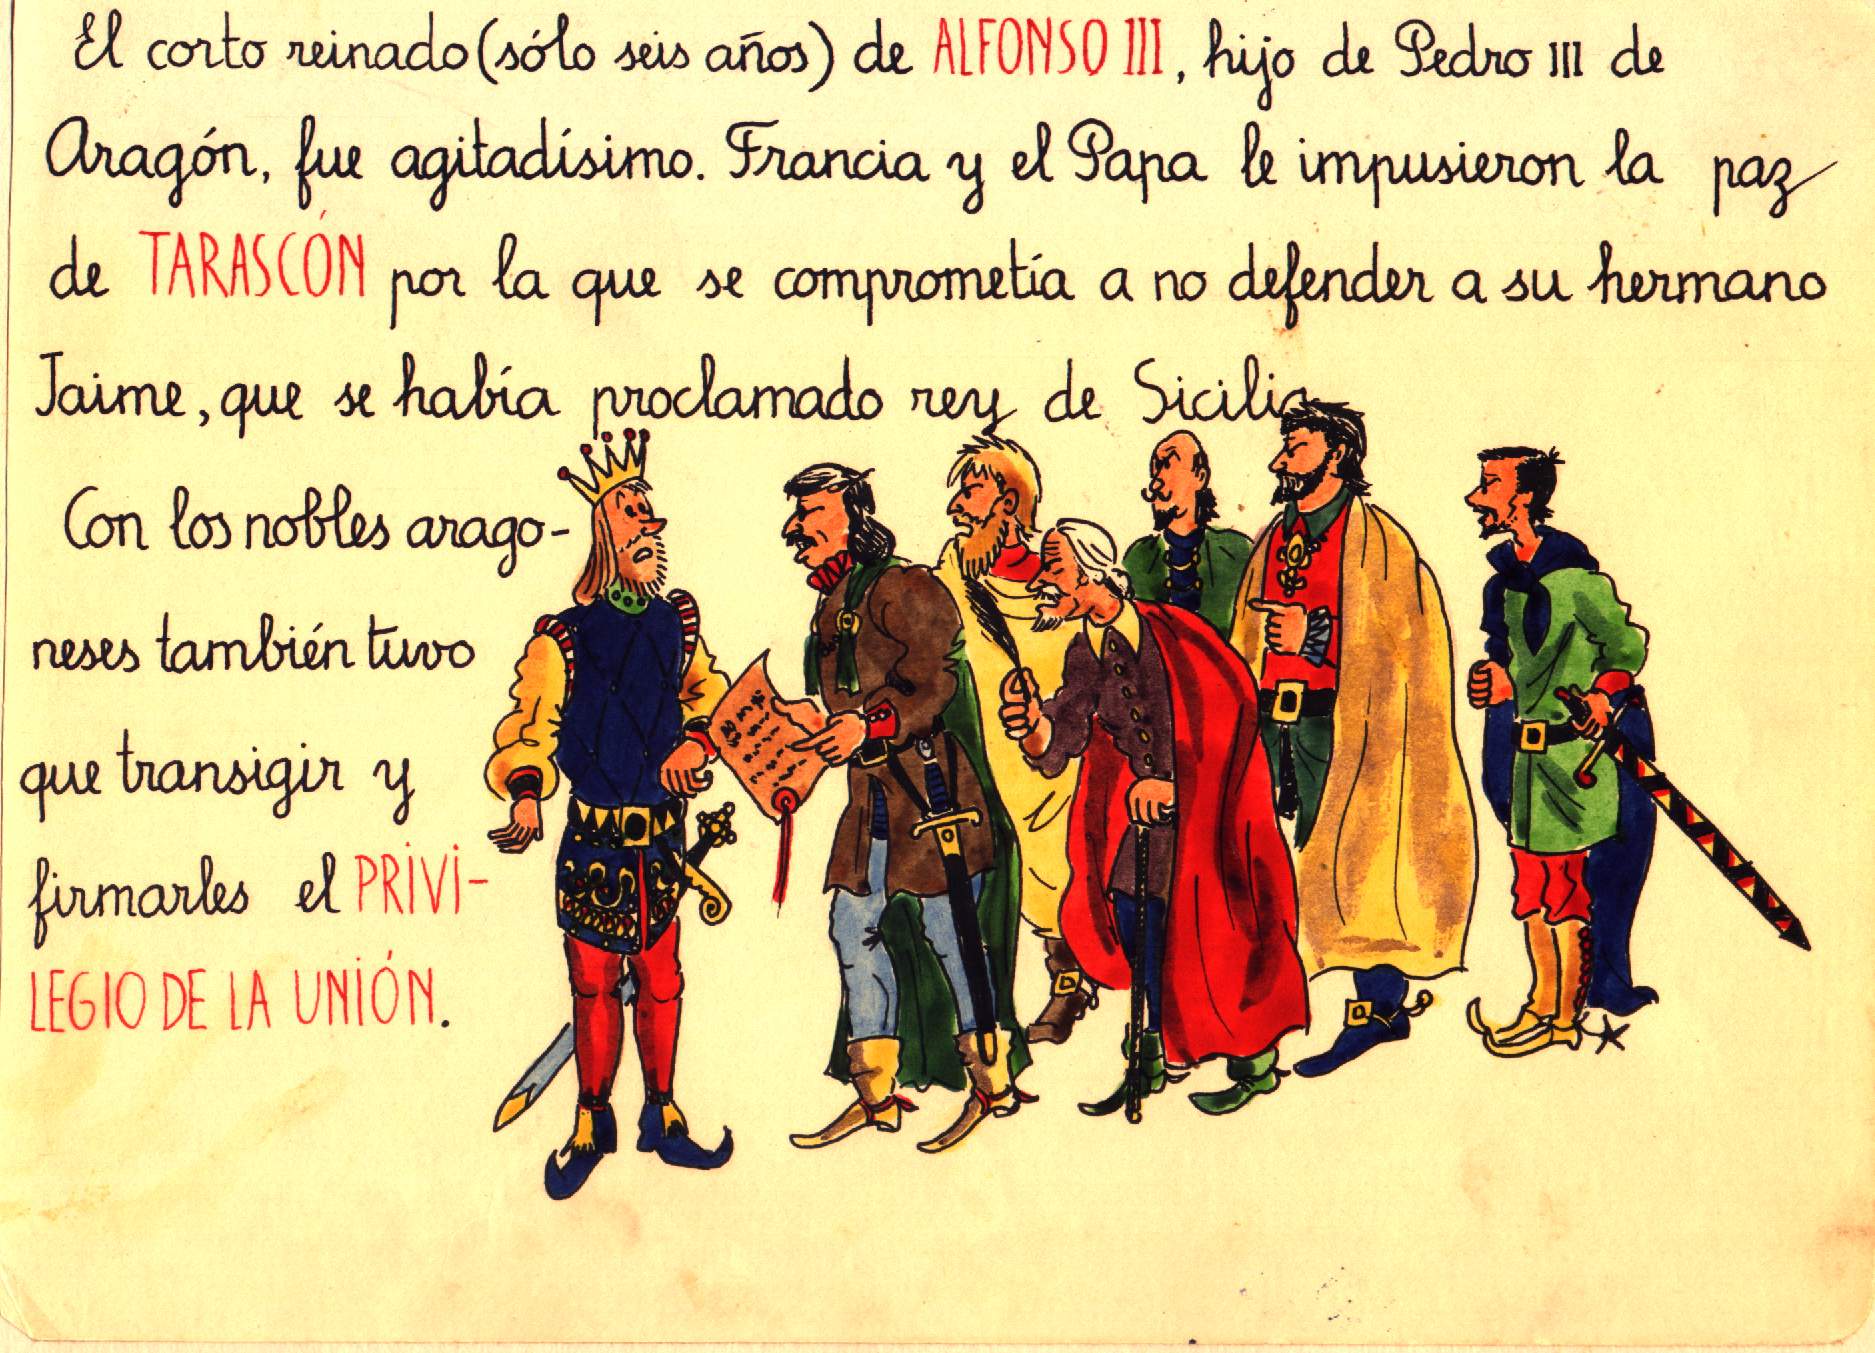 El corto reinado (sólo seis años) de ALFONSO III, hijo de Pedro III de
Aragón, fue agitadísimo. Francia y el Papa le impusieron la paz
de TARASCÓN por la que se comprometía a no defender a su hermano
Jaime, que se había proclamado rey de Sicilia
Con los nobles arago-
neses también tuvo
que transigir y
firmarles el PRIVI-
LEGIO DE LA UNIÓN.